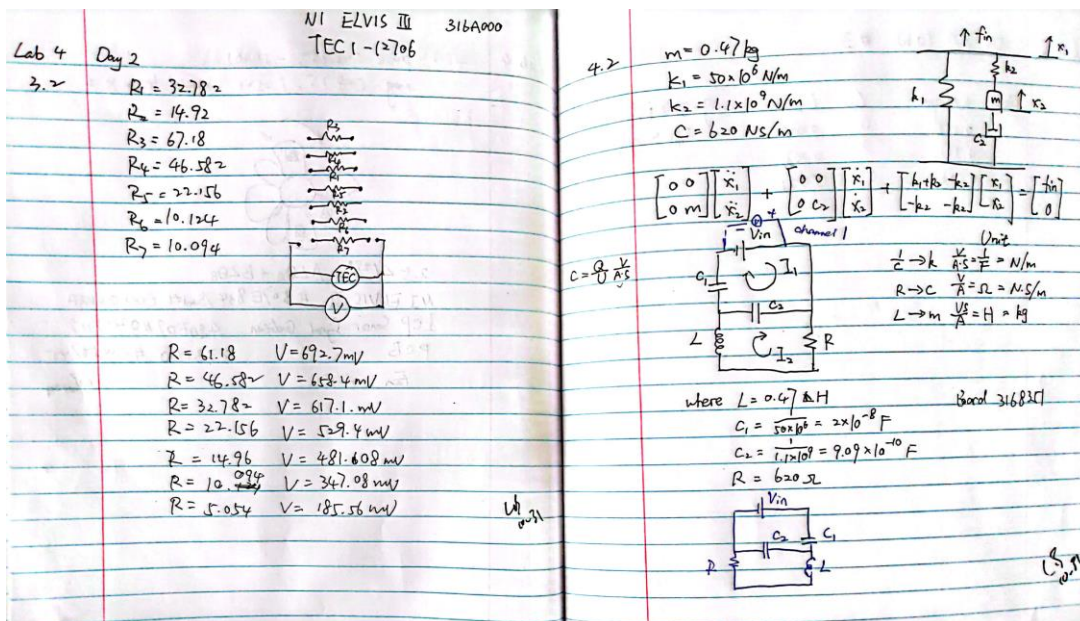 NI ELVIS III 316A000
TEC1-12706
Lab 4 Day 2
3.2
R1 = 32.782
R2 = 14.92
R3 = 67.18
R4 = 46.582
R5 = 22.156
R6 = 10.124
R7 = 10.094
R3
R4
R1
R5
R2
R6
R7
TEC
V
R = 61.18 V = 692.7mV
R = 46.582 V = 658.4 mV
R = 32.782 V = 617.1. mV
R = 22.156 V = 529.4 mV
R = 14.96 V = 481.608 mV
R = 10.094 V = 347.08 mV
R = 5.054 V = 185.56 mV
4.2 m = 0.47 kg
k1 = 50×10⁶ N/m
k2 = 1.1×10⁹ N/m
C = 620 NS/m
↑ fin ↑ x1
k2
k1 m ↑ x2
c2
[0 0; 0 m] [ẍ1; ẍ2] + [0 0; 0 c2] [ẋ1; ẋ2] + [k1+k2 -k2; -k2 -k2] [x1; x2] = [fin; 0]
channel 1
Vin
C1 I1
C2
L I2 R
C = Q/U V/A·S
Unit
1/C → k V/A·S = 1/F = N/m
R → C V/A = Ω = N·S/m
L → m VS/A = H = kg
where L = 0.47 H
C1 = 1/50×10⁶ = 2×10⁻⁸ F
C2 = 1/1.1×10⁹ = 9.09×10⁻¹⁰ F
R = 620 Ω
Board 3168351
Vin
C2 C1
R L